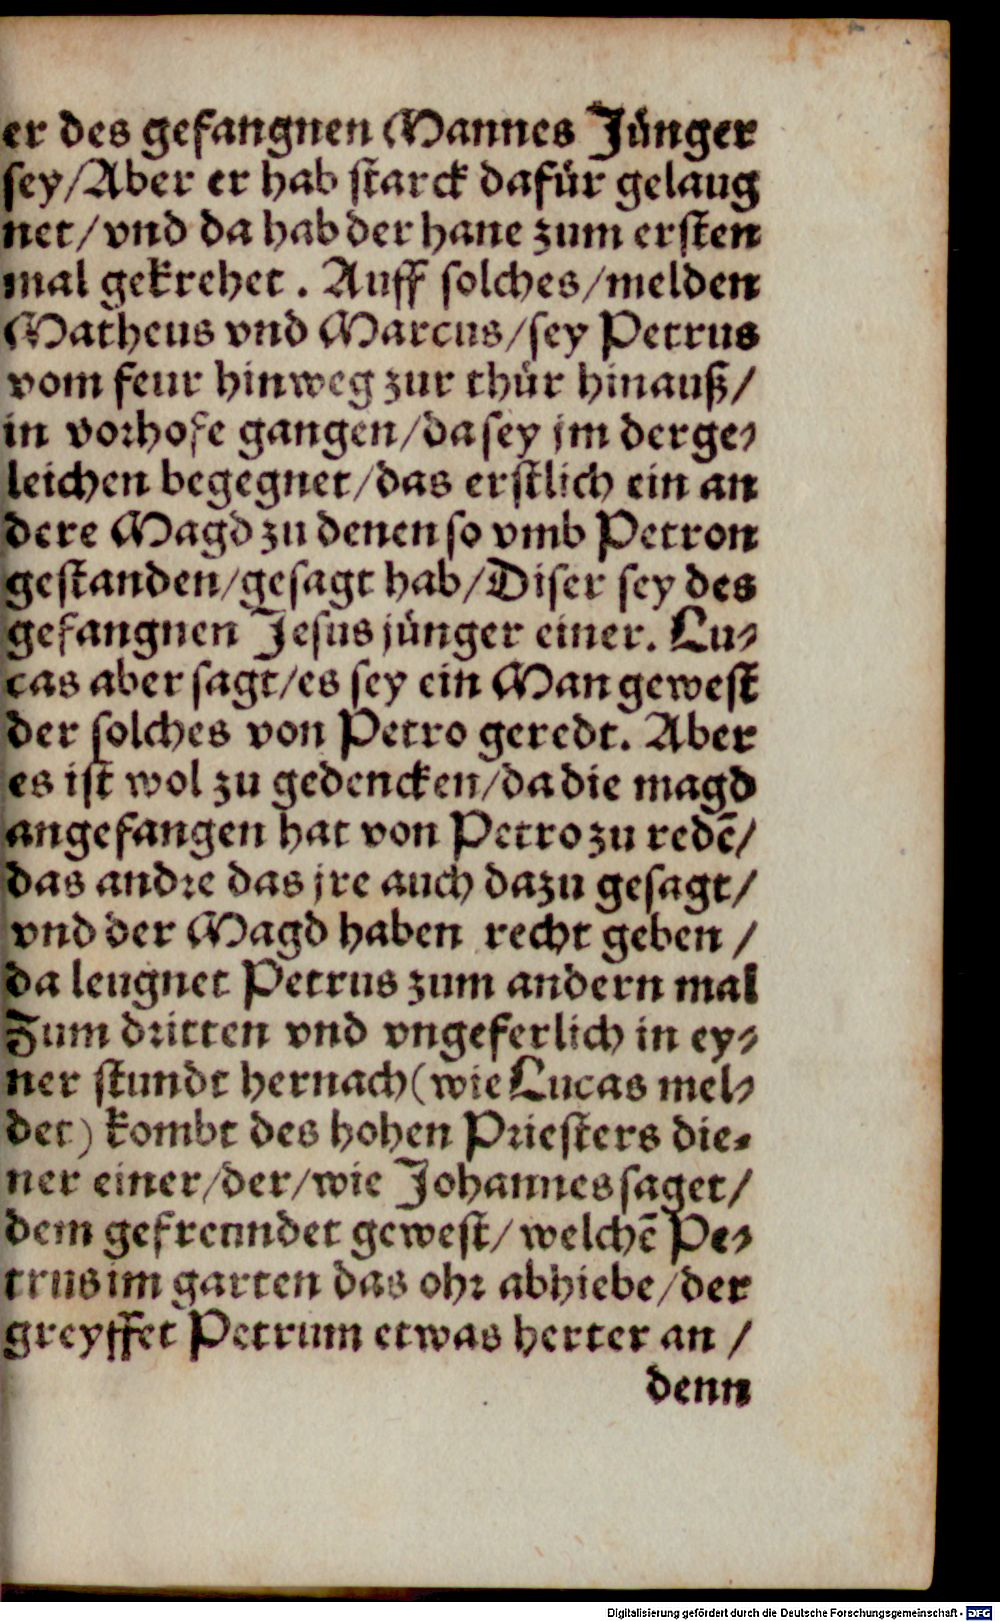 er des gefangnen Mannes Jünger
sey/Aber er hab starck dafür gelaug
net/vnd da hab der hane zum ersten
mal gekrehet. Auff solches/melden
Matheus vnd Marcus/sey Petrus
vom feur hinweg zur thür hinauß/
in vorhofe gangen/da sey jm derge-
leichen begegnet/das erstlich ein an
dere Magd zu denen so vmb Petron
gestanden/gesagt hab/Diser sey des
gefangnen Jesus jünger einer. Lu-
cas aber sagt/es sey ein Man gewest
der solches von Petro geredt. Aber
es ist wol zu gedencken/da die magd
angefangen hat von Petro zu redē/
das andre das jre auch dazu gesagt/
vnd der Magd haben recht geben /
da leugnet Petrus zum andern mal
Zum dritten vnd vngeferlich in ey-
ner stundt hernach (wie Lucas mel-
det) kombt des hohen Priesters die-
ner einer/der/wie Johannes saget/
dem gefreundet gewest/ welchē Pe-
trus im garten das ohr abhiebe/der
greyffet Petrum etwas herter an /
denn
Digitalisierung gefördert durch die Deutsche Forschungsgemeinschaft - DFG